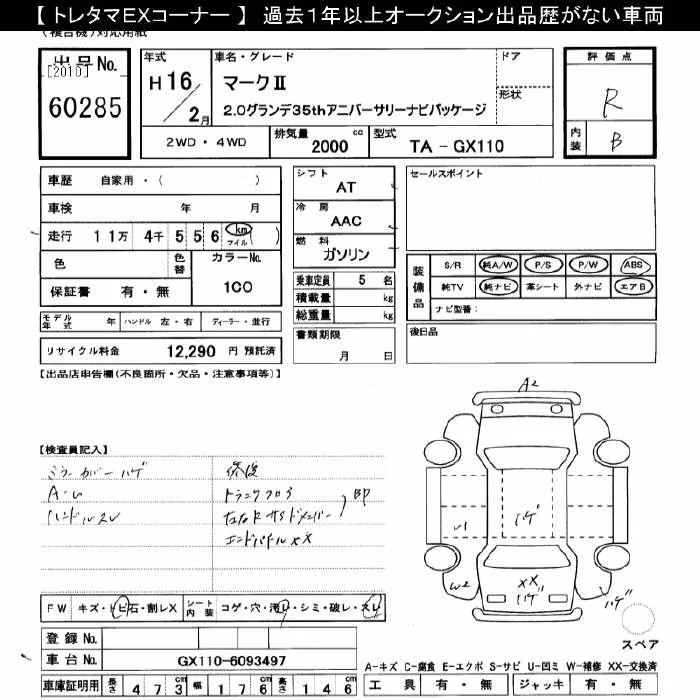 【 トレタマEXコーナー 】 過去1年以上オークション出品歴がない車両
(複合機)対応用紙
出品No.
[2010]
60285
年式
H16/2月
車名・グレード
マークⅡ
2.0グランデ35thアニバーサリーナビパッケージ
ドア
形状
2WD・4WD
排気量 2000 cc
型式 TA - GX110
評価点
R
内装 B
車歴 自家用・( )
車検 年 月
走行 11万 4千 5 5 6 km マイル ( )
色
色替
カラーNo.
1C0
保証書 有・無
モデル年式 年 ハンドル 左・右 ディーラー・並行
リサイクル料金 12,290 円 預託済
シフト AT
冷房 AAC
燃料 ガソリン
乗車定員 5 名
積載量 kg
総重量 kg
書類期限
月 日
セールスポイント
装備品
S/R 純A/W P/S P/W ABS
純TV 純ナビ 革シート 外ナビ エアB
ナビ型番:
後日品
【出品店申告欄(不良箇所・欠品・注意事項等)】
【検査員記入】
ミラーカバーハゲ
A-U
ハンドルスレ
修復
トランクフロア
エンドパネルXX
A2
U1
ハゲ
W2
XX
ハゲ
ハゲ
スペア
FW キズ・トビ石・割レX
シート内装 コゲ・穴・汚レ・シミ・破レ・スレ
登録No.
車台No. GX110-6093497
車庫証明用 長さ 473cm 幅 176cm 高さ 146cm
A-キズ C-腐食 E-エクボ S-サビ U-凹ミ W-補修 XX-交換済
工具 有・無 ジャッキ 有・無